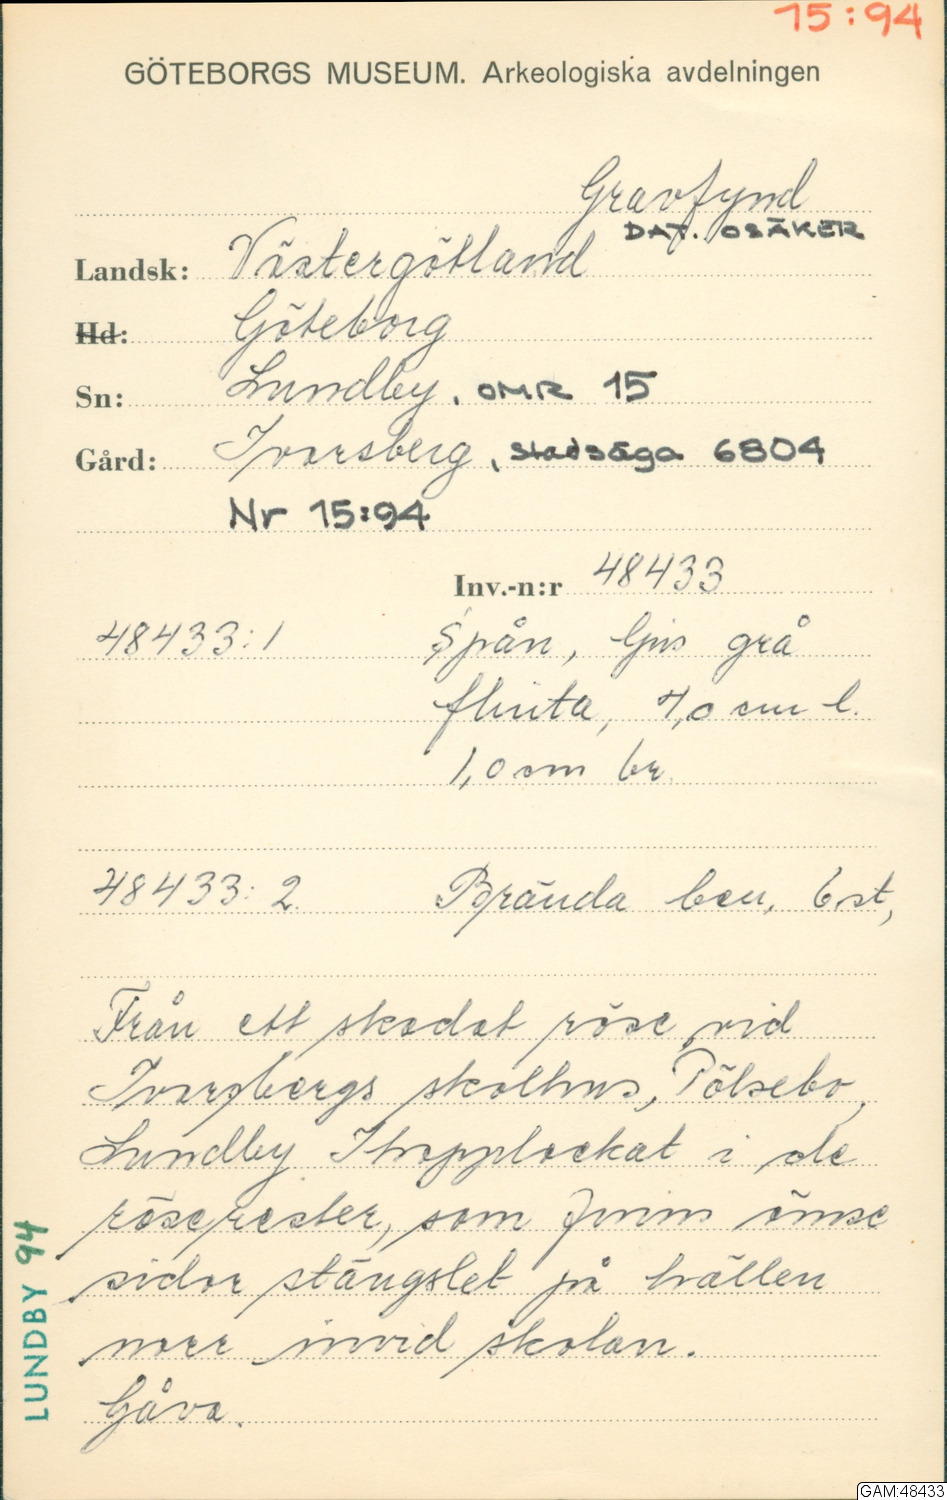 15:94
GÖTEBORGS MUSEUM. Arkeologiska avdelningen
Gravfynd
DAT. OSÄKER
Landsk: Västergötland
Hd: Göteborg
Sn: Lundby, OMR 15
Gård: Ivarsberg, stadsäga 6804
Nr 15:94
Inv.-n:r 48433
48433:1 Spån, ljus grå
flinta, 4,0 cm l.
1,0 cm br.
48433:2. Brända ben, 6 st,
Från ett skadat röse vid
Ivarsbergs skolhus, Pölsebo,
Lundby. Ihopplockat i de
röserester, som finns ömse
sidor stängslet på hällen
norr invid skolan.
Gåva.
LUNDBY 94
GAM:48433